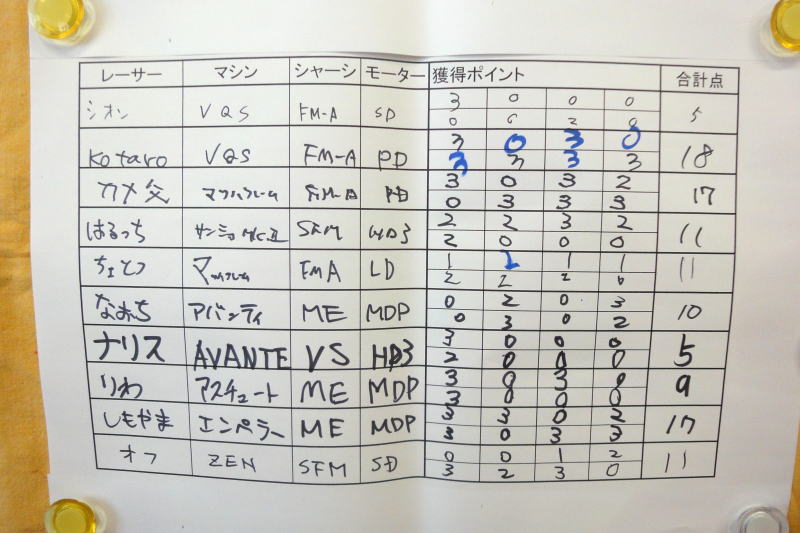 レーサー マシン シャーシ モーター 獲得ポイント 合計点
シオン VQS FM-A SD 3 0 0 0 5
0 0 2 0
Kotaro VQS FM-A PD 3 0 3 0 18
3 3 3 3
カメ父 マッハフレーム FM-A PD 3 0 3 2 17
0 3 3 3
はるっち SFM HD3 2 2 3 2 11
2 0 0 0
ちょとつ FMA LD 1 1 1 1 11
2 2 2
なおち アバンティ ME MDP 0 2 0 3 10
0 3 0 2
ナリス AVANTE VS HD3 3 0 0 0 5
2 0 0 0
りわ アスチュート ME MDP 3 0 3 0 9
3 0 0 0
しもやま エンペラー ME MDP 3 3 0 2 17
3 0 3 3
オフ ZEN SFM SD 0 0 1 2 11
3 2 3 0